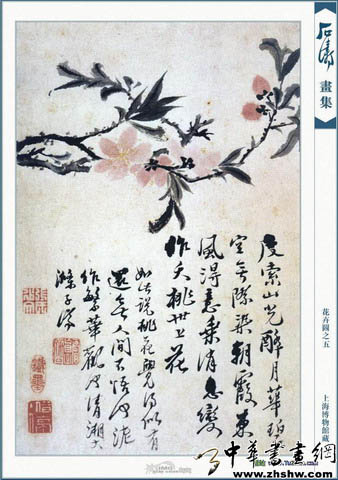 石濤
畫集
度索山光醉月華碧
空無際染朝霞東
風得意乘消息變
作夭桃世上花
如此說桃花覺得似有
還無人間不悟
作繁華觀 清湘大
滌子
花卉圖之五
上海博物館藏
中華書畫網
www.zhshw.com